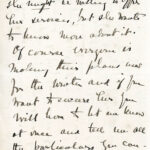 she might be willing to offer
her services, but she wants
to know more about it.
Of course everyone is
making their plans now
for the winter and if you
want to secure her you
will have to let me know
at once and tell me all
the particulars you can